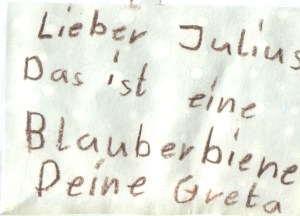 Lieber Julius
Das ist eine
Blauberbiene
Deine Greta